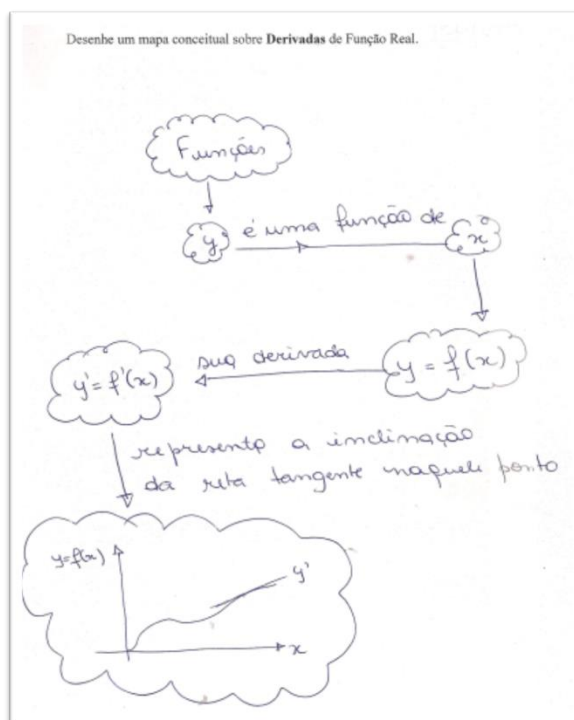 Desenhe um mapa conceitual sobre Derivadas de Função Real.
Funções
y é uma função de x
y'= f'(x) sua derivada y = f(x)
representa a inclinação
da reta tangente naquele ponto
y=f(x)
y'
x